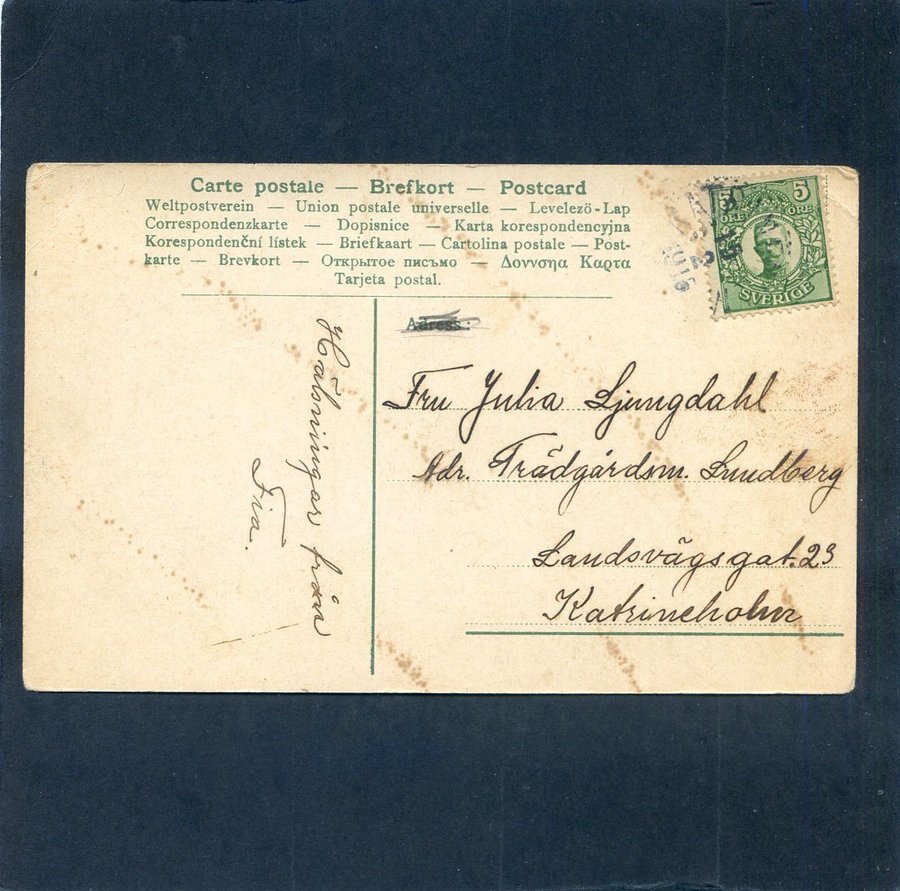 Carte postale — Brefkort — Postcard
Weltpostverein — Union postale universelle — Levelező-Lap
Correspondenzkarte — Dopisnice — Karta korespondencyjna
Korespondenční lístek — Briefkaart — Cartolina postale — Post-
karte — Brevkort — Открытое письмо — Δονυσηα Καρτα
Tarjeta postal.
5 5
ÖRE ÖRE
SVERIGE
Adress:
Hälsningar från
Fia.
Fru Julia Ljungdahl
Adr. Trädgårdsm. Lundberg
Landsvägsgat. 23
Katrineholm